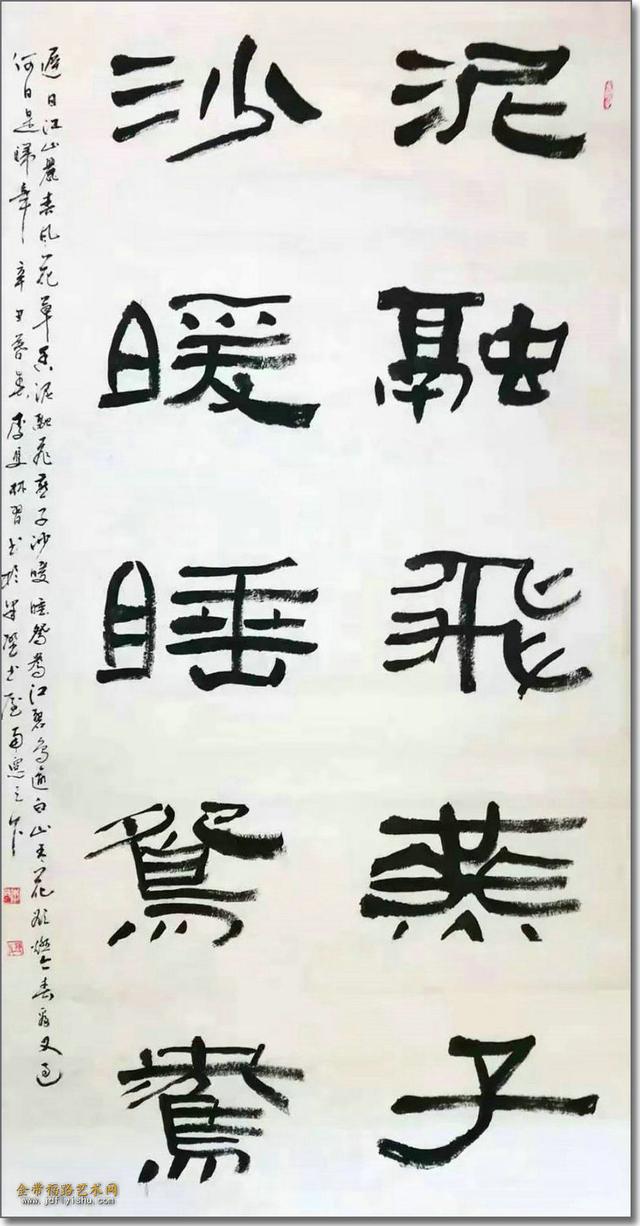 泥融飛燕子
沙暖睡鴛鴦
遲日江山麗春风花草香泥融飛燕子沙暖睡鴛鴦江碧鸟逾白山青花欲燃今春看又過
何日是歸年辛丑春習书於书屋南窗之
金带福路艺术网
www.jdflyishu.com